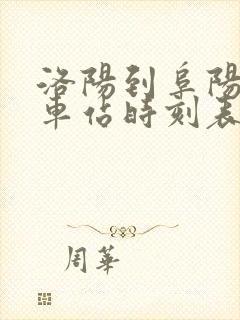 洛陽到阜陽
車佔時刻表
周華